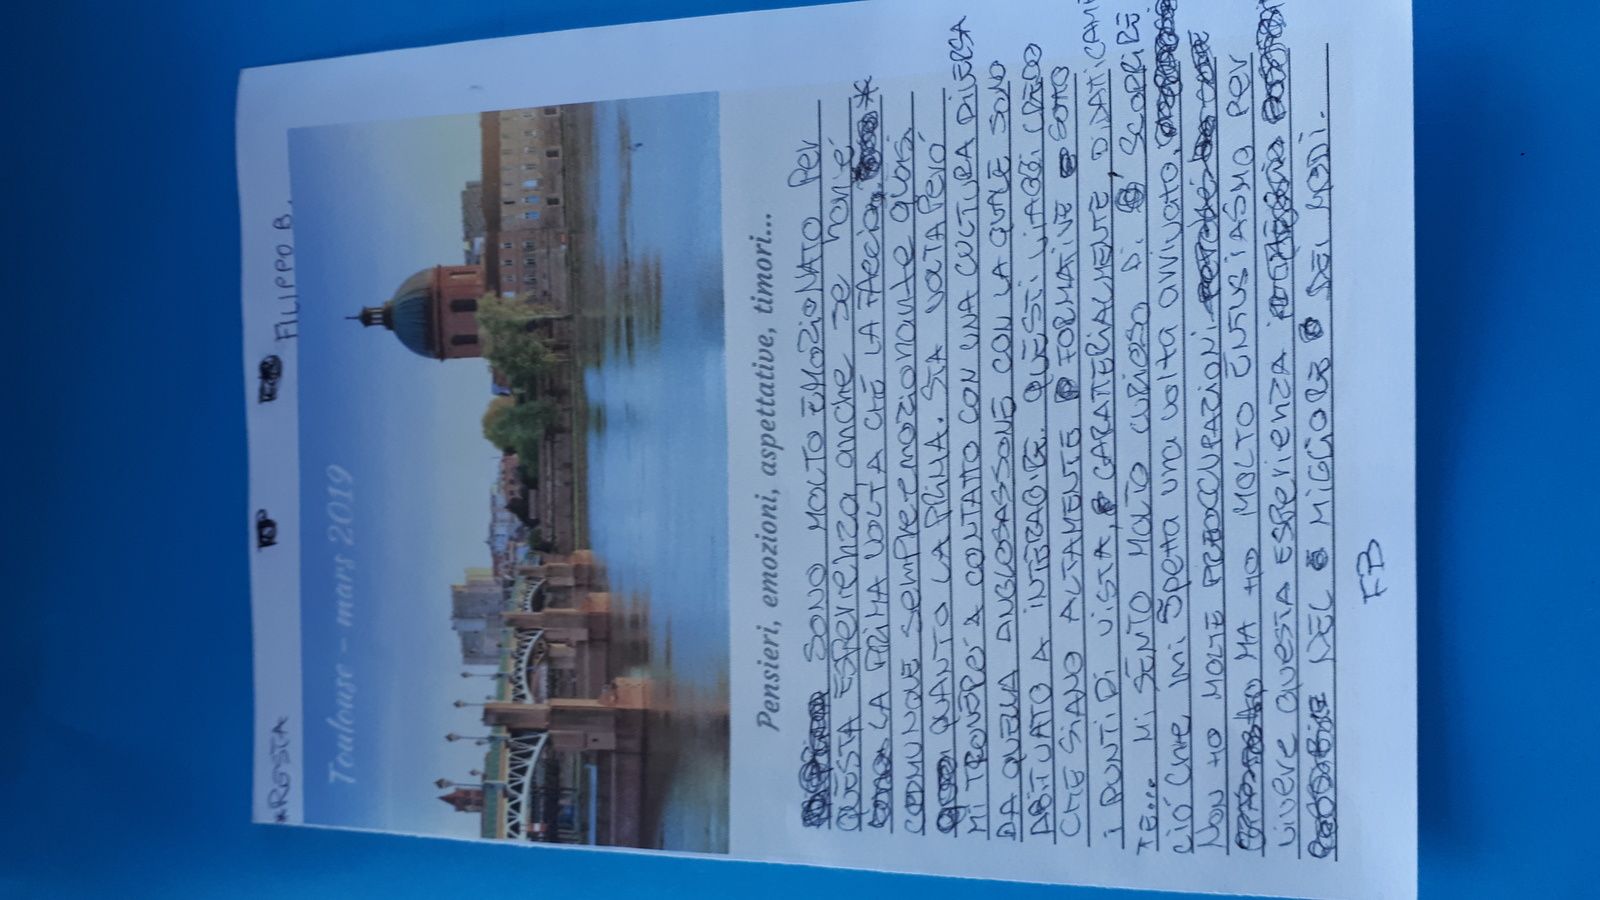 *RESTA
FILIPPO B.
Toulouse - mars 2019
Pensieri, emozioni, aspettative, timori...
SONO MOLTO EMOZIONATO Per
QUESTA ESPerienza anche se non é
LA PRIMA VOLTA CHE LA FACCIO, *
COMUNQUE SEMPre emozionante quasi
QUANTO LA PRIMA. STA VOLTA Però
MI TROVERÒ A CONTATTO CON UNA CULTURA DIVERSA
DA QUELLA ANGLOSASSONE CON LA QUALE SONO
ABITUATO A INTERAGIRE. QUESTI VIAGGI CREDO
CHE SIANO ALTAMENTE FORMATIVI SOTTO
I PUNTI DI VISTA, CARATTERIALMENTE, DIDATTICAMEN
TE... MI SENTO MOLTO CURIOSO DI SCOPRIRE
CIÒ CHE MI SPetta una volta arrivato,
NON HO MOLTE PREOCCUPAZIONI
MA HO MOLTO ENTUSIASMO Per
vivere QUESTA ESPerienza
NEL MIGLIORE DEI MODI.
FB